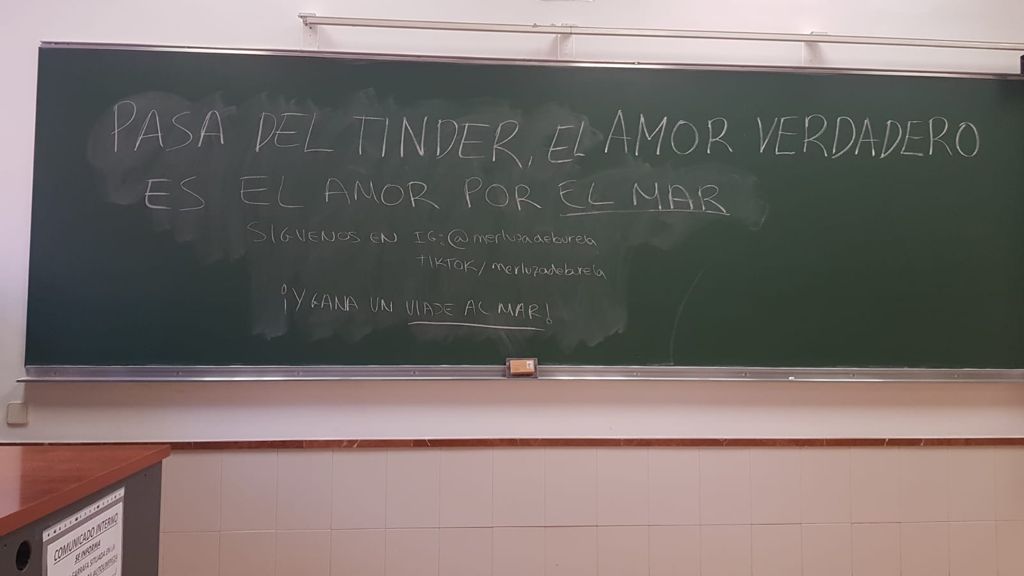 PASA DEL TINDER, EL AMOR VERDADERO
ES EL AMOR POR EL MAR
SÍGUENOS EN IG: @merluzadeburela
TIKTOK/merluzadeburela
¡Y GANA UN VIAJE AL MAR!
COMUNICADO INTERNO
SE INFORMA
GARRAFA SITUADA EN LA